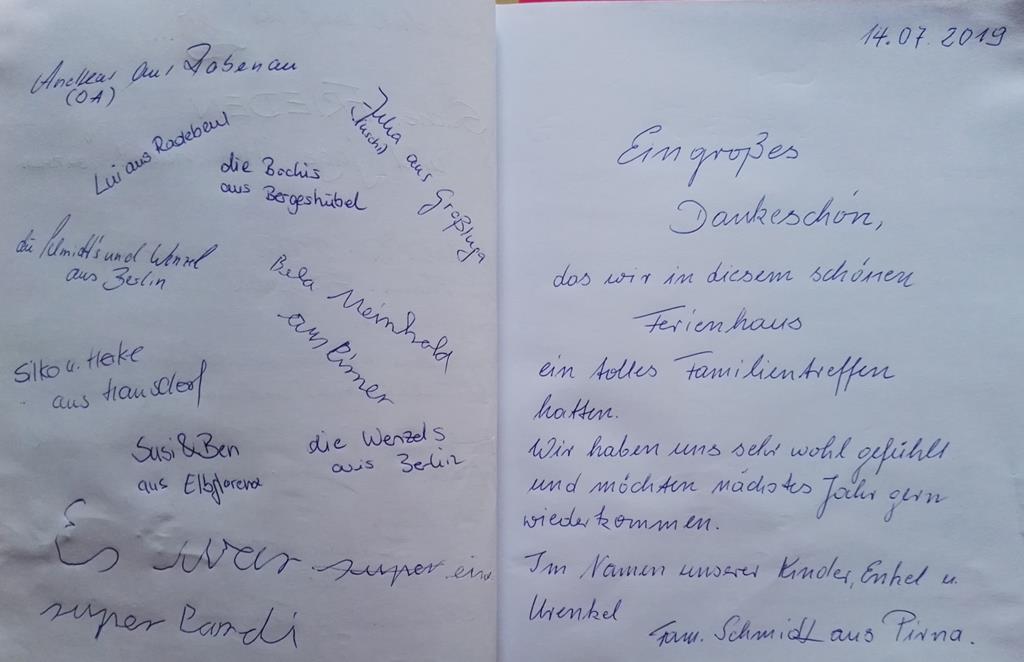 Andreas aus Rabenau
(OA)
Julia aus Großluga
(Muschi)
Lui aus Radebeul
die Bochis
aus Bergeshübel
die Schmidt's und Wenzel
aus Berlin
Bela Meinhold
aus Pirner
Silko u. Heike
aus Hausdorf
Susi & Ben
aus Elbflorenz
die Wenzels
aus Berlin
Es war super eine
super
14.07.2019
Ein großes
Dankeschön,
das wir in diesem schönen
Ferienhaus
ein tolles Familientreffen
hatten.
Wir haben uns sehr wohl gefühlt
und möchten nächstes Jahr gern
wiederkommen.
Im Namen unserer Kinder, Enkel u.
Urenkel
Fam. Schmidt aus Pirna.